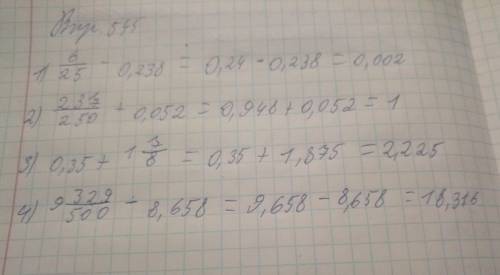 Впр. 575
1) 6/25 - 0,238 = 0,24 - 0,238 = 0,002
2) 237/250 + 0,052 = 0,948 + 0,052 = 1
3) 0,35 + 1 7/8 = 0,35 + 1,875 = 2,225
4) 9 329/500 - 8,658 = 9,658 - 8,658 = 18,316